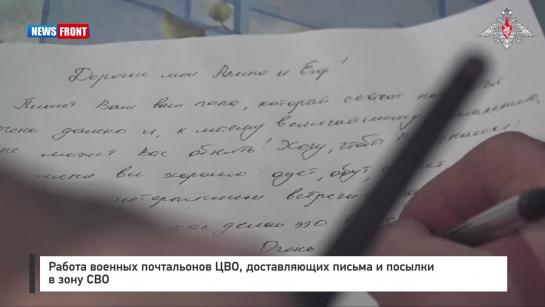 NEWS FRONT
Дорогие мои Алина и Егор!
Пишет Вам ваш папа, который сейчас
очень далеко и, к моему величайшему сожалению,
не может Вас обнять! Хочу, чтобы Вы
меня все хорошо: одет, обут,
нетерпением встречи
как делал это
Очень
Работа военных почтальонов ЦВО, доставляющих письма и посылки
в зону СВО